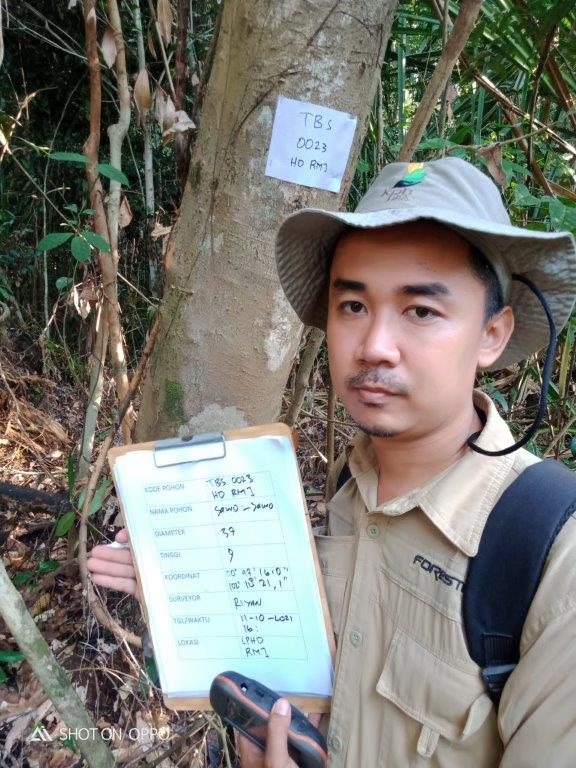 TBS
0023
HD RMJ
FOREST
KODE POHON TBS 0023
HD RMJ
NAMA POHON SAWO - SAWO
DIAMETER 37
TINGGI 9
KOORDINAT 00° 42' 16.0"
102° 13' 21,1"
SURVEYOR RIYAN
TGL/WAKTU 11-10-2021
16:
LOKASI LPHD
RMJ
SHOT ON OPPO